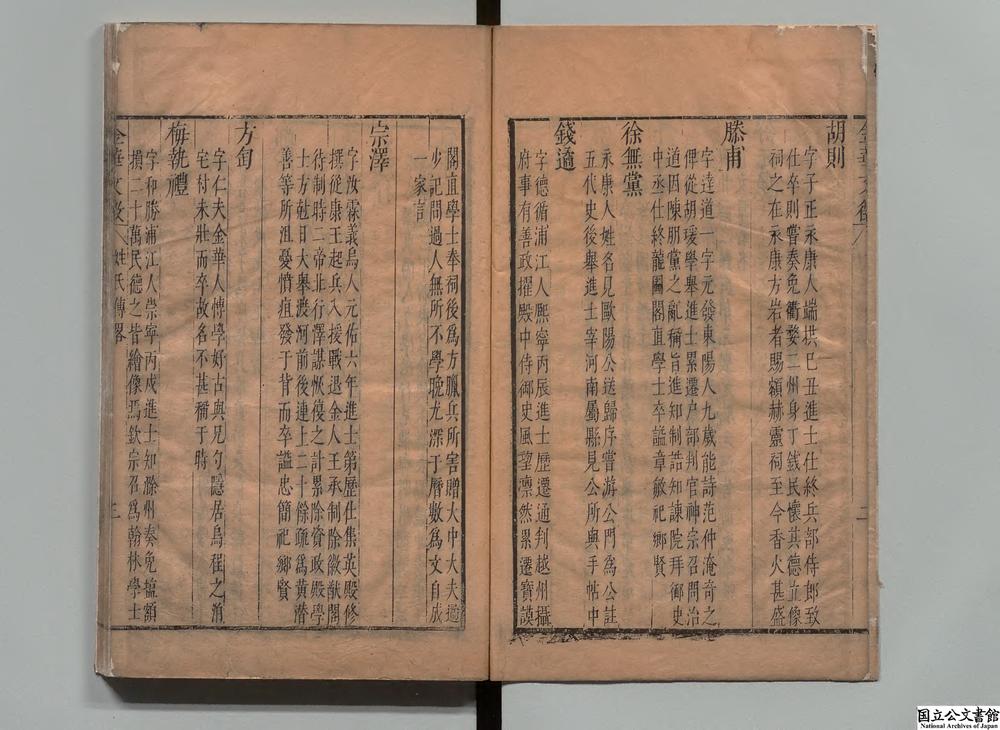 胡則
字子正永康人端拱己丑進士仕終兵部侍郎致
仕卒則嘗奏免衢婺二州身丁錢民懷其德立像
祠之在永康方岩者賜額赫靈祠至今香火甚盛
滕甫
字達道一字元發東陽人九歲能詩范仲淹奇之
俾從胡瑗學舉進士累遷戶部判官神宗召問治
道因陳朋黨之亂稱旨進知制誥知諫院拜御史
中丞仕終龍圖閣直學士卒諡章敏祀鄉賢
徐無黨
永康人姓名見歐陽公送歸序嘗游公門為公註
五代史後舉進士宰河南屬縣見公所與手帖中
錢遹
字德循浦江人熙寧丙辰進士歷遷通判越州攝
府事有善政擢殿中侍御史風望凛然累遷寶謨
閣直學士奉祠後爲方臘兵所害贈大中大夫遹
少記問過人無所不學晚尤深于曆數爲文自成
一家言
宗澤
字汝霖義烏人元佑六年進士第歷仕集英殿修
撰從康王起兵入援戰退金人王承制除徽猷閣
待制時二帝北行澤謀恢復之計累除資政殿學
士方尅日大舉渡河前後連上二十餘疏爲黃潛
善等所沮憂憤疽發于背而卒諡忠簡祀鄉賢
方匋
字仁夫金華人博學好古與兄勺隱居烏程之
宅村未壯而卒故名不甚稱于時
梅執禮
字和勝浦江人崇寧丙戌進士知滁州奏免鹽額
損二十萬民德之皆繪像焉欽宗召爲翰林學士
金華文徵 姓氏傳畧 三
国立公文書館
National Archives of Japan